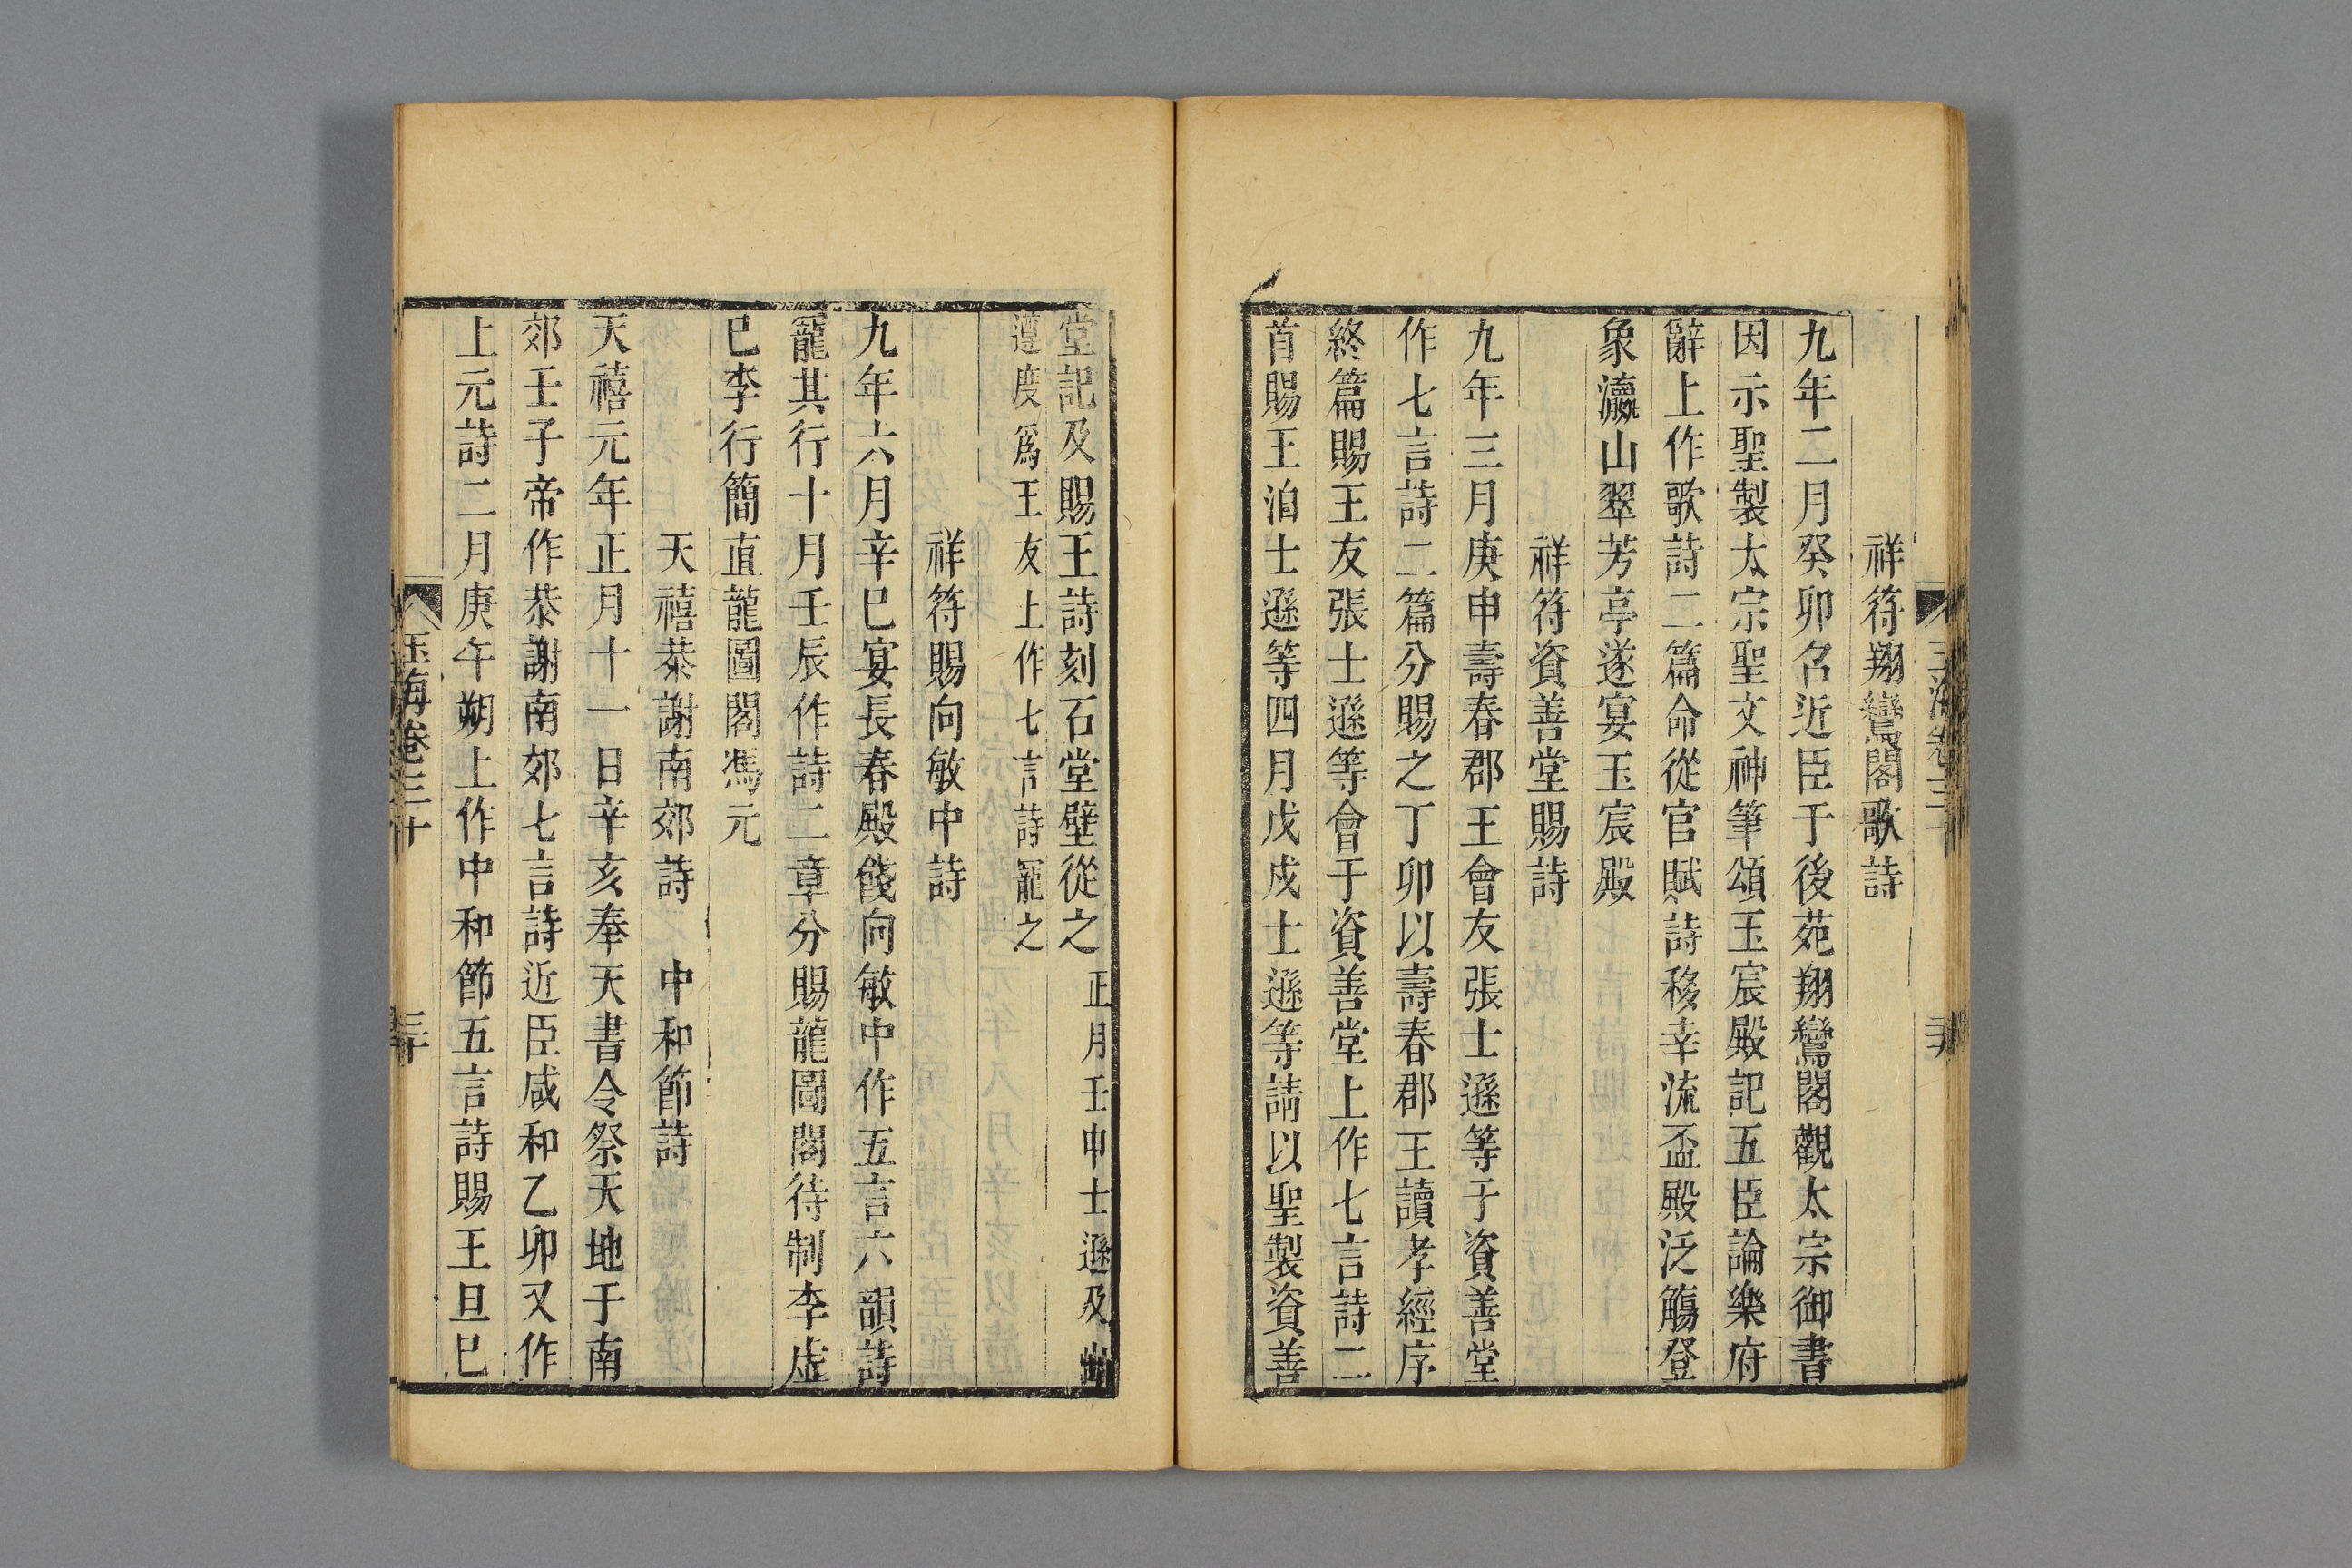 祥符翔鸞閣歌詩
九年二月癸卯召近臣于後苑翔鸞閣觀太宗御書
因示聖製太宗聖文神筆頌玉宸殿記五臣論樂府
辭上作歌詩二篇命從官賦詩移幸流盃殿泛觴登
象瀛山翠芳亭遂宴玉宸殿
祥符資善堂賜詩
九年三月庚申壽春郡王會友張士遜等于資善堂
作七言詩二篇分賜之丁卯以壽春郡王讀孝經序
終篇賜王友張士遜等會于資善堂上作七言詩二
首賜王洎士遜等四月戊戌士遜等請以聖製資善
堂記及賜王詩刻石堂壁從之
正月壬申士遜及崔
遵度爲王友上作七言詩寵之
祥符賜向敏中詩
九年六月辛巳宴長春殿餞向敏中作五言六韻詩
寵其行十月壬辰作詩二章分賜龍圖閣待制李虛
已李行簡直龍圖閣馮元
天禧恭謝南郊詩 中和節詩
天禧元年正月十一日辛亥奉天書令祭天地于南
郊壬子帝作恭謝南郊七言詩近臣咸和乙卯又作
上元詩二月庚午朔上作中和節五言詩賜王旦巳
玉海卷三十
三十